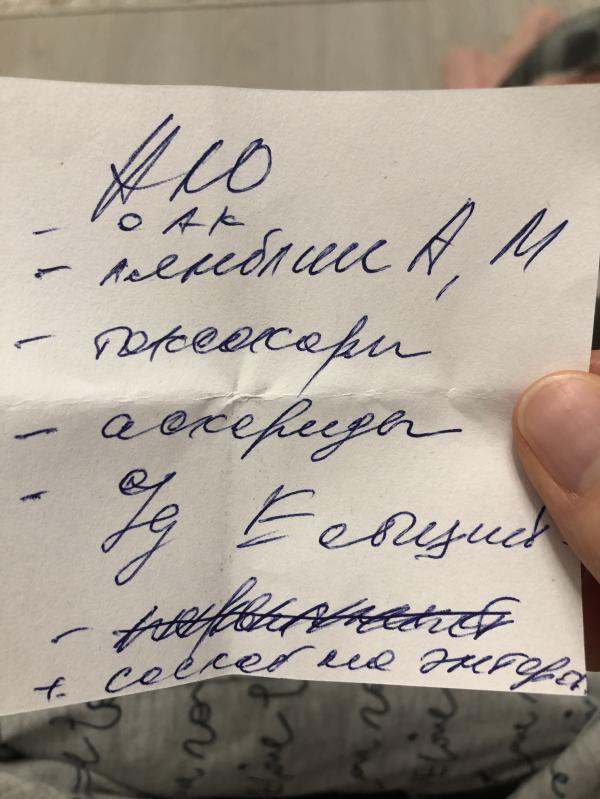 - ОАК
- лямблии А, М
- токсокары
- аскариды
- Ig E общий
-
+ соскоб на энтероб